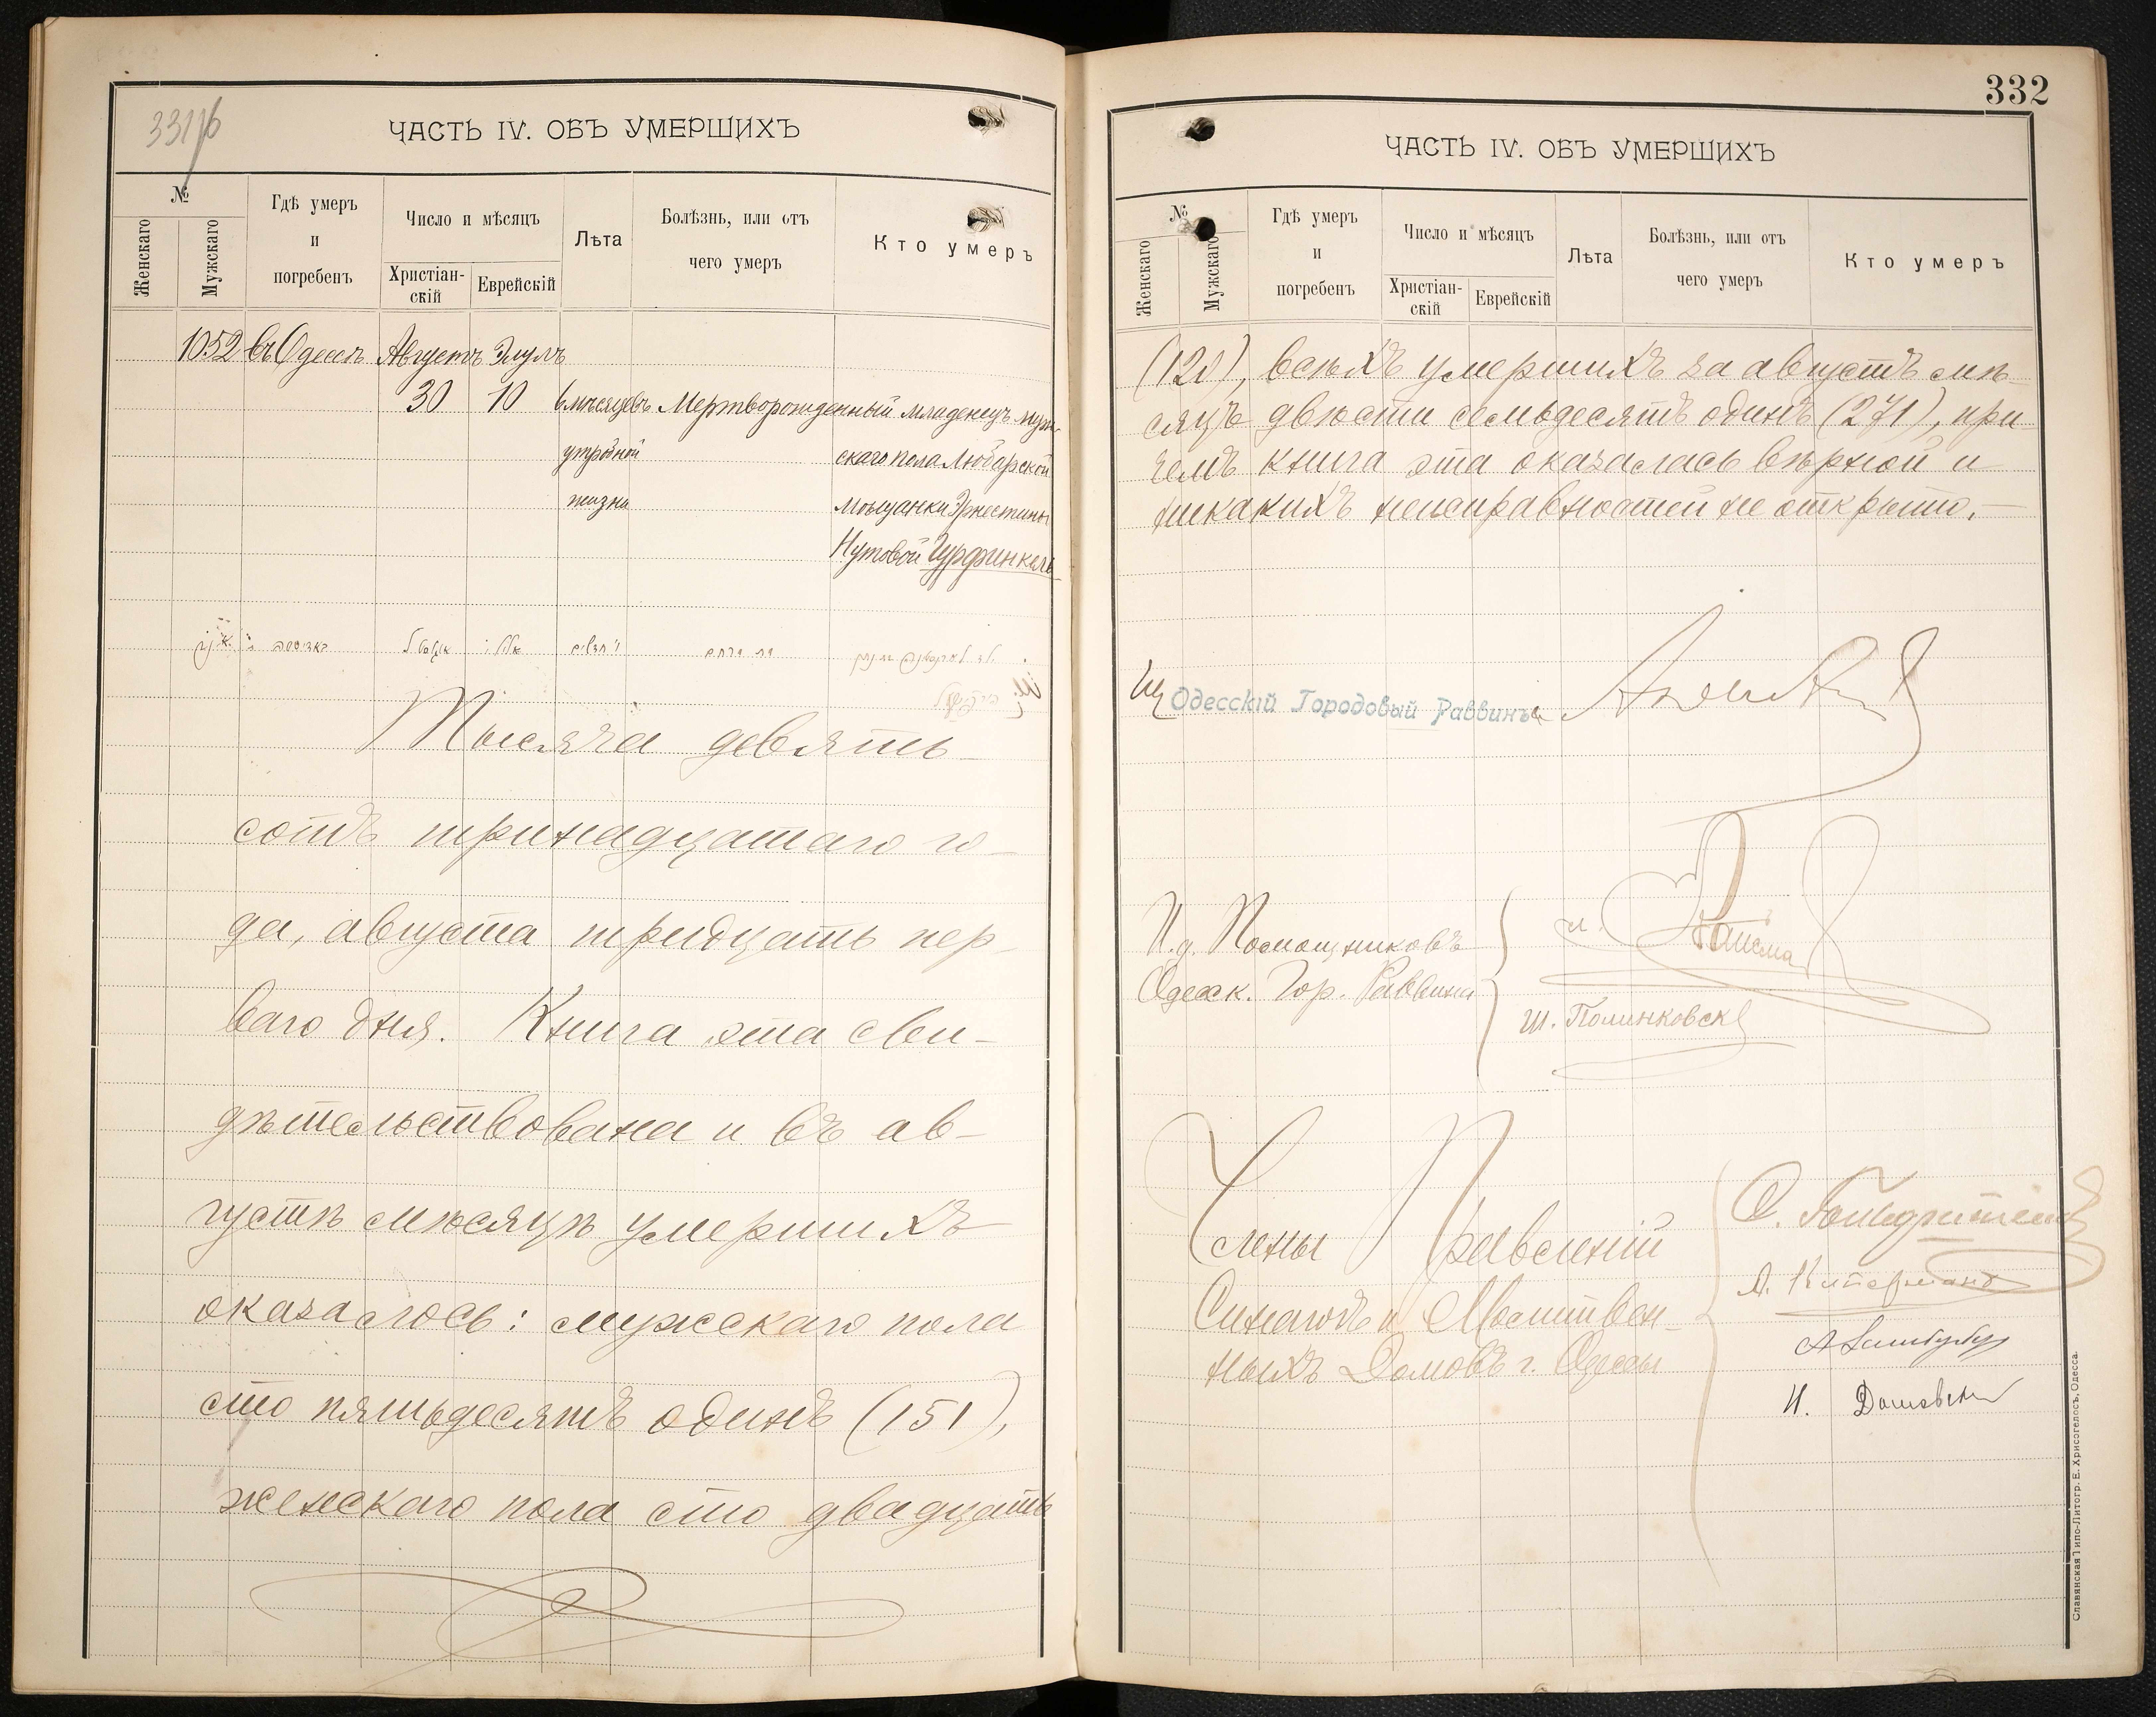 331/б
ЧАСТЬ IV. ОБЪ УМЕРШИХЪ
№
Женскаго
Мужскаго
Гдѣ умеръ
и
погребенъ
Число и мѣсяцъ
Христіан-
скій
Еврейскій
Лѣта
Болѣзнь, или отъ
чего умеръ
Кто умеръ
1052 въ Одессѣ Августъ Элулъ
30 10 6 мѣсяцевъ Мертворожденный младенецъ муж-
утробной скаго пола Любарской
жизни мѣщанки Эрнестины
Нутовой Гурфинкель
Тысяча девять-
сотъ тринадцатаго го-
да, августа тридцать пер-
ваго дня. Книга эта сви-
дѣтельствована и въ ав-
густѣ мѣсяцѣ умершихъ
оказалось: мужскаго пола
сто пятьдесятъ одинъ (151),
женскаго пола сто двадцать
332
ЧАСТЬ IV. ОБЪ УМЕРШИХЪ
№
Женскаго
Мужскаго
Гдѣ умеръ
и
погребенъ
Число и мѣсяцъ
Христіан-
скій
Еврейскій
Лѣта
Болѣзнь, или отъ
чего умеръ
Кто умеръ
(120), всѣхъ умершихъ за августъ мѣ-
сяцъ двѣсти семьдесятъ одинъ (271), при
чемъ книга эта оказалась вѣрной и
никакихъ неисправностей не открыто.—
Одесскій Городовый Раввинъ
И.д. Помощниковъ
Одесск. Гор. Раввина
Ш. Полинковск
Члены Правленій
Синагогъ и Молитвен-
ныхъ Домовъ г. Одессы
А. Киперманъ
И.
Славянская Типо-Литогр. Е. Хрисогелосъ, Одесса.